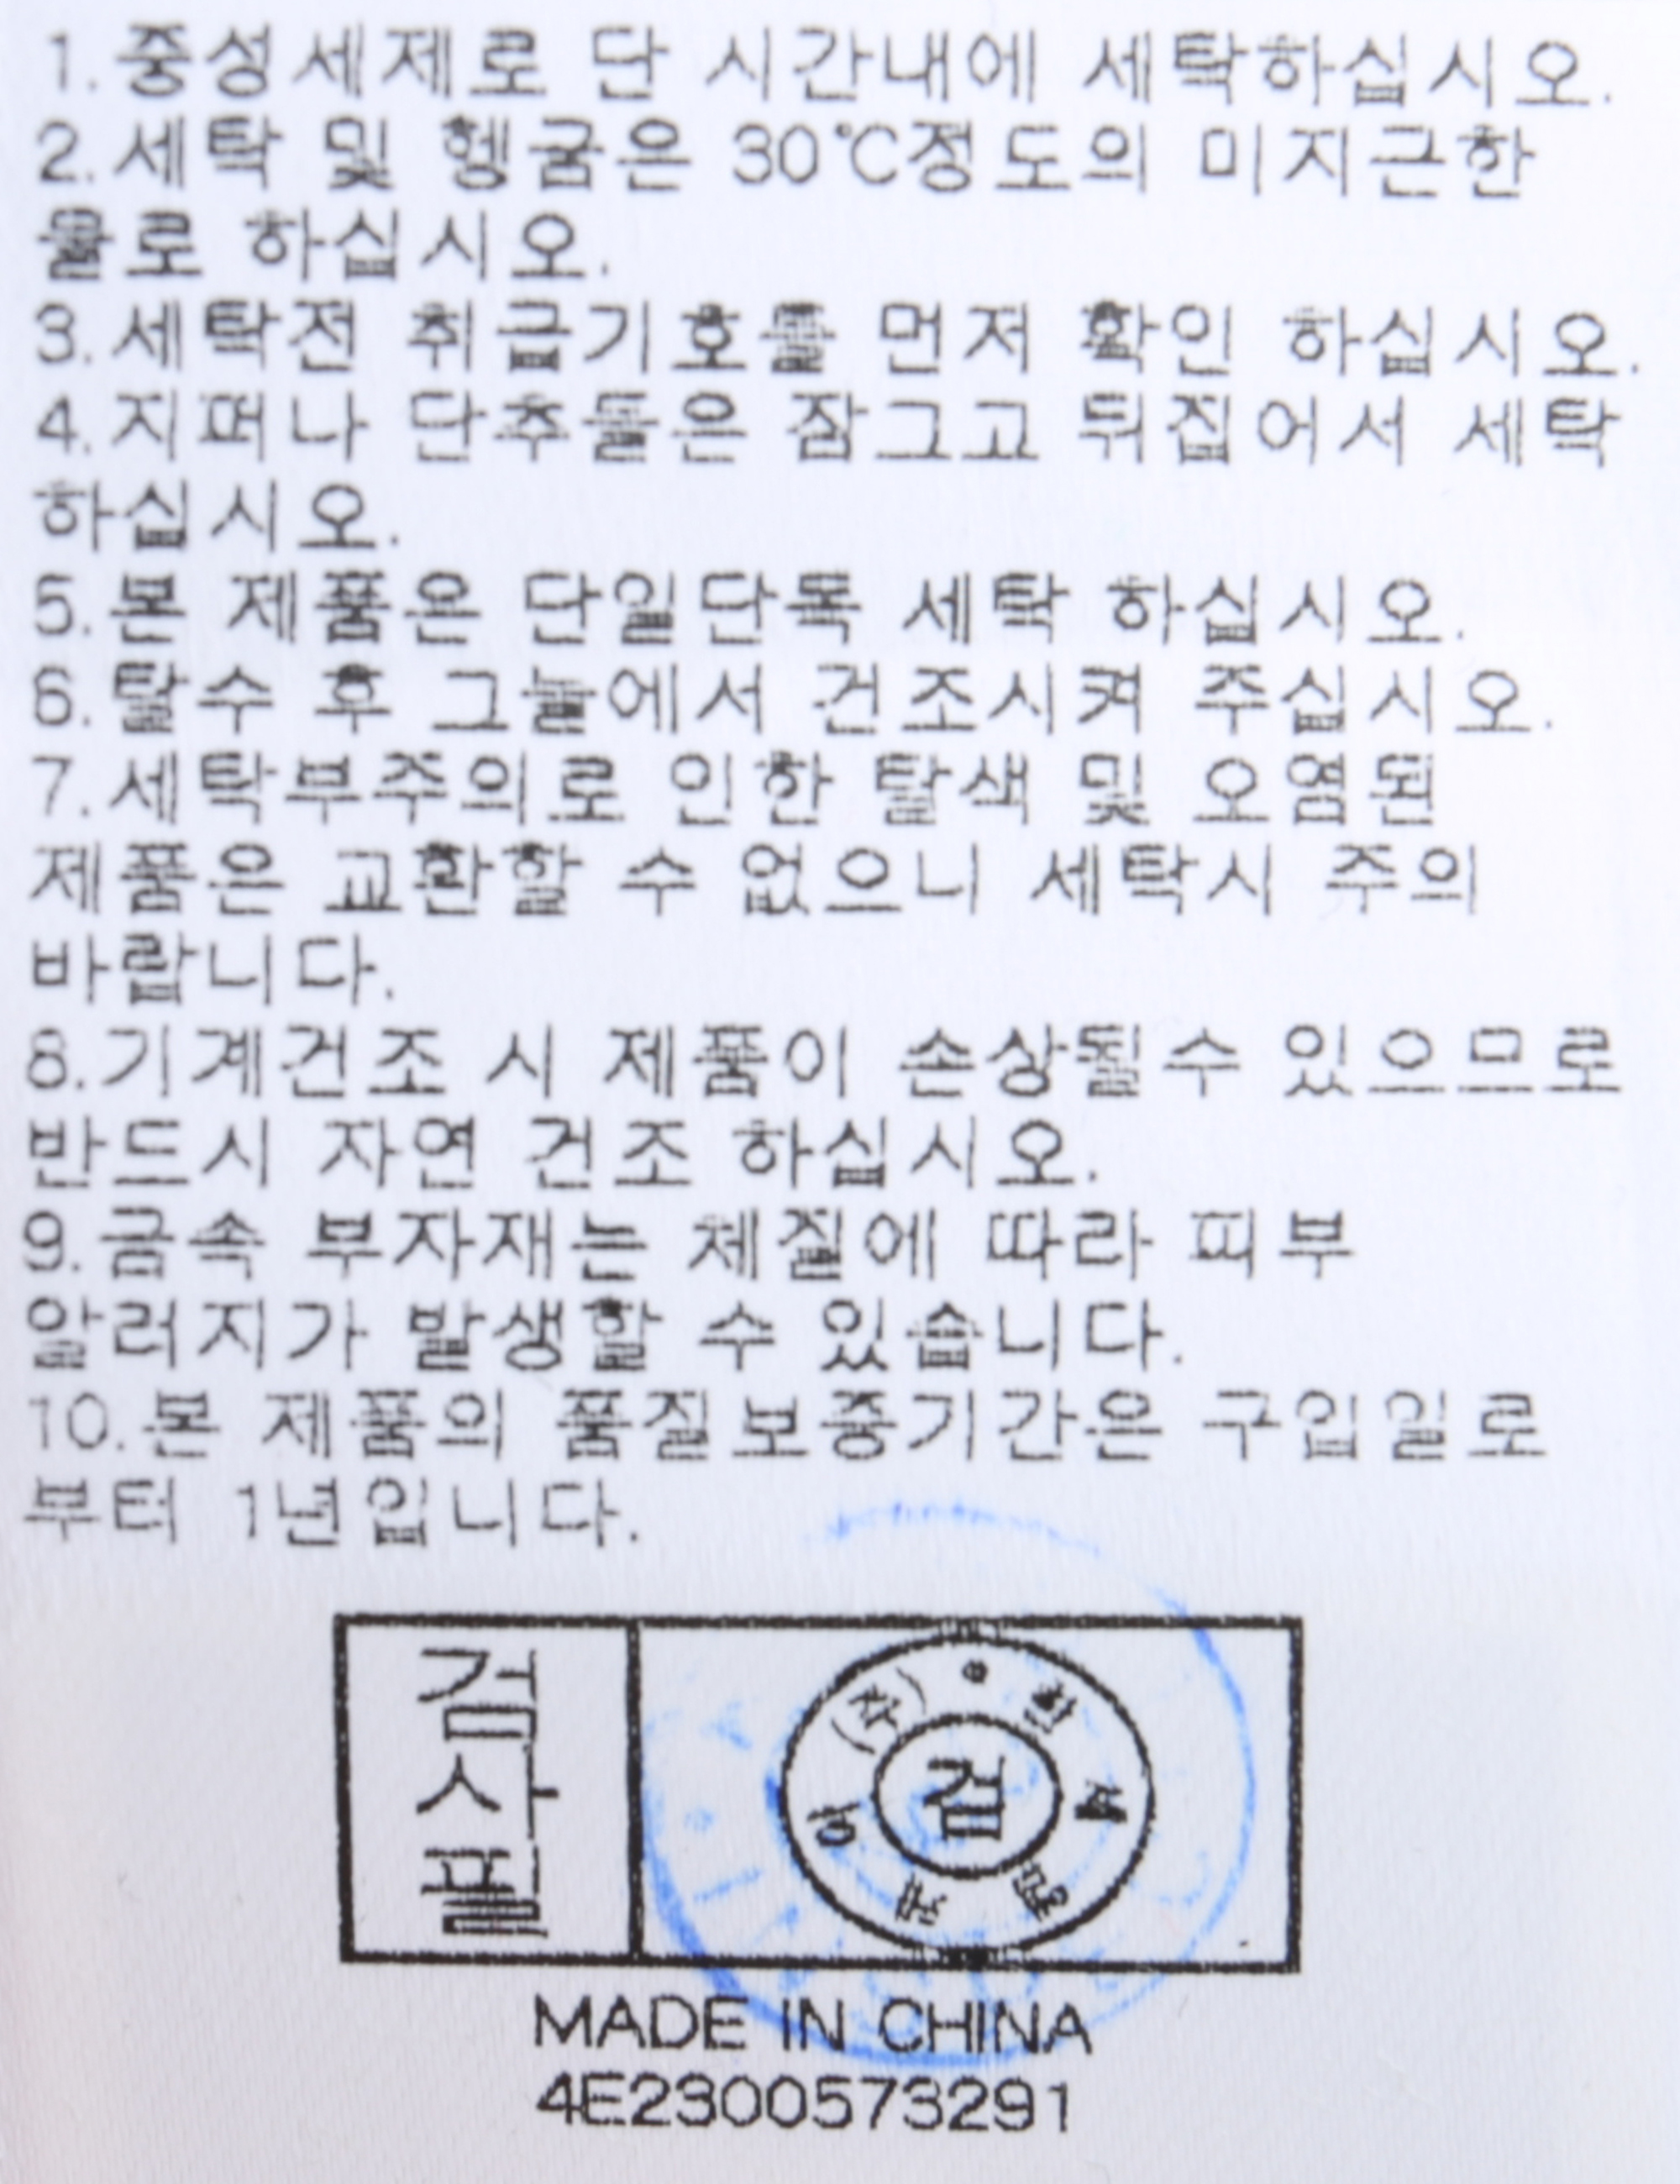 1.중성세제로 단 시간내에 세탁하십시오.
2.세탁 및 헹굼은 30℃정도의 미지근한
물로 하십시오.
3.세탁전 취급기호를 먼저 확인 하십시오.
4.지퍼나 단추들은 잠그고 뒤집어서 세탁
하십시오.
5.본 제품은 단일단독 세탁 하십시오.
6.탈수 후 그늘에서 건조시켜 주십시오.
7.세탁부주의로 인한 탈색 및 오염된
제품은 교환할 수 없으니 세탁시 주의
바랍니다.
8.기계건조 시 제품이 손상될수 있으므로
반드시 자연 건조 하십시오.
9.금속 부자재는 체질에 따라 피부
알러지가 발생할 수 있습니다.
10.본 제품의 품질보증기간은 구입일로
부터 1년입니다.
검사필
(주)
검
MADE IN CHINA
4E2300573291